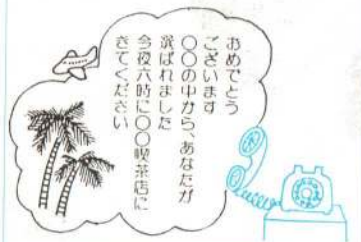 おめでとう
ございます
○○の中から、あなたが
選ばれました
今夜六時に○○喫茶店に
きてください